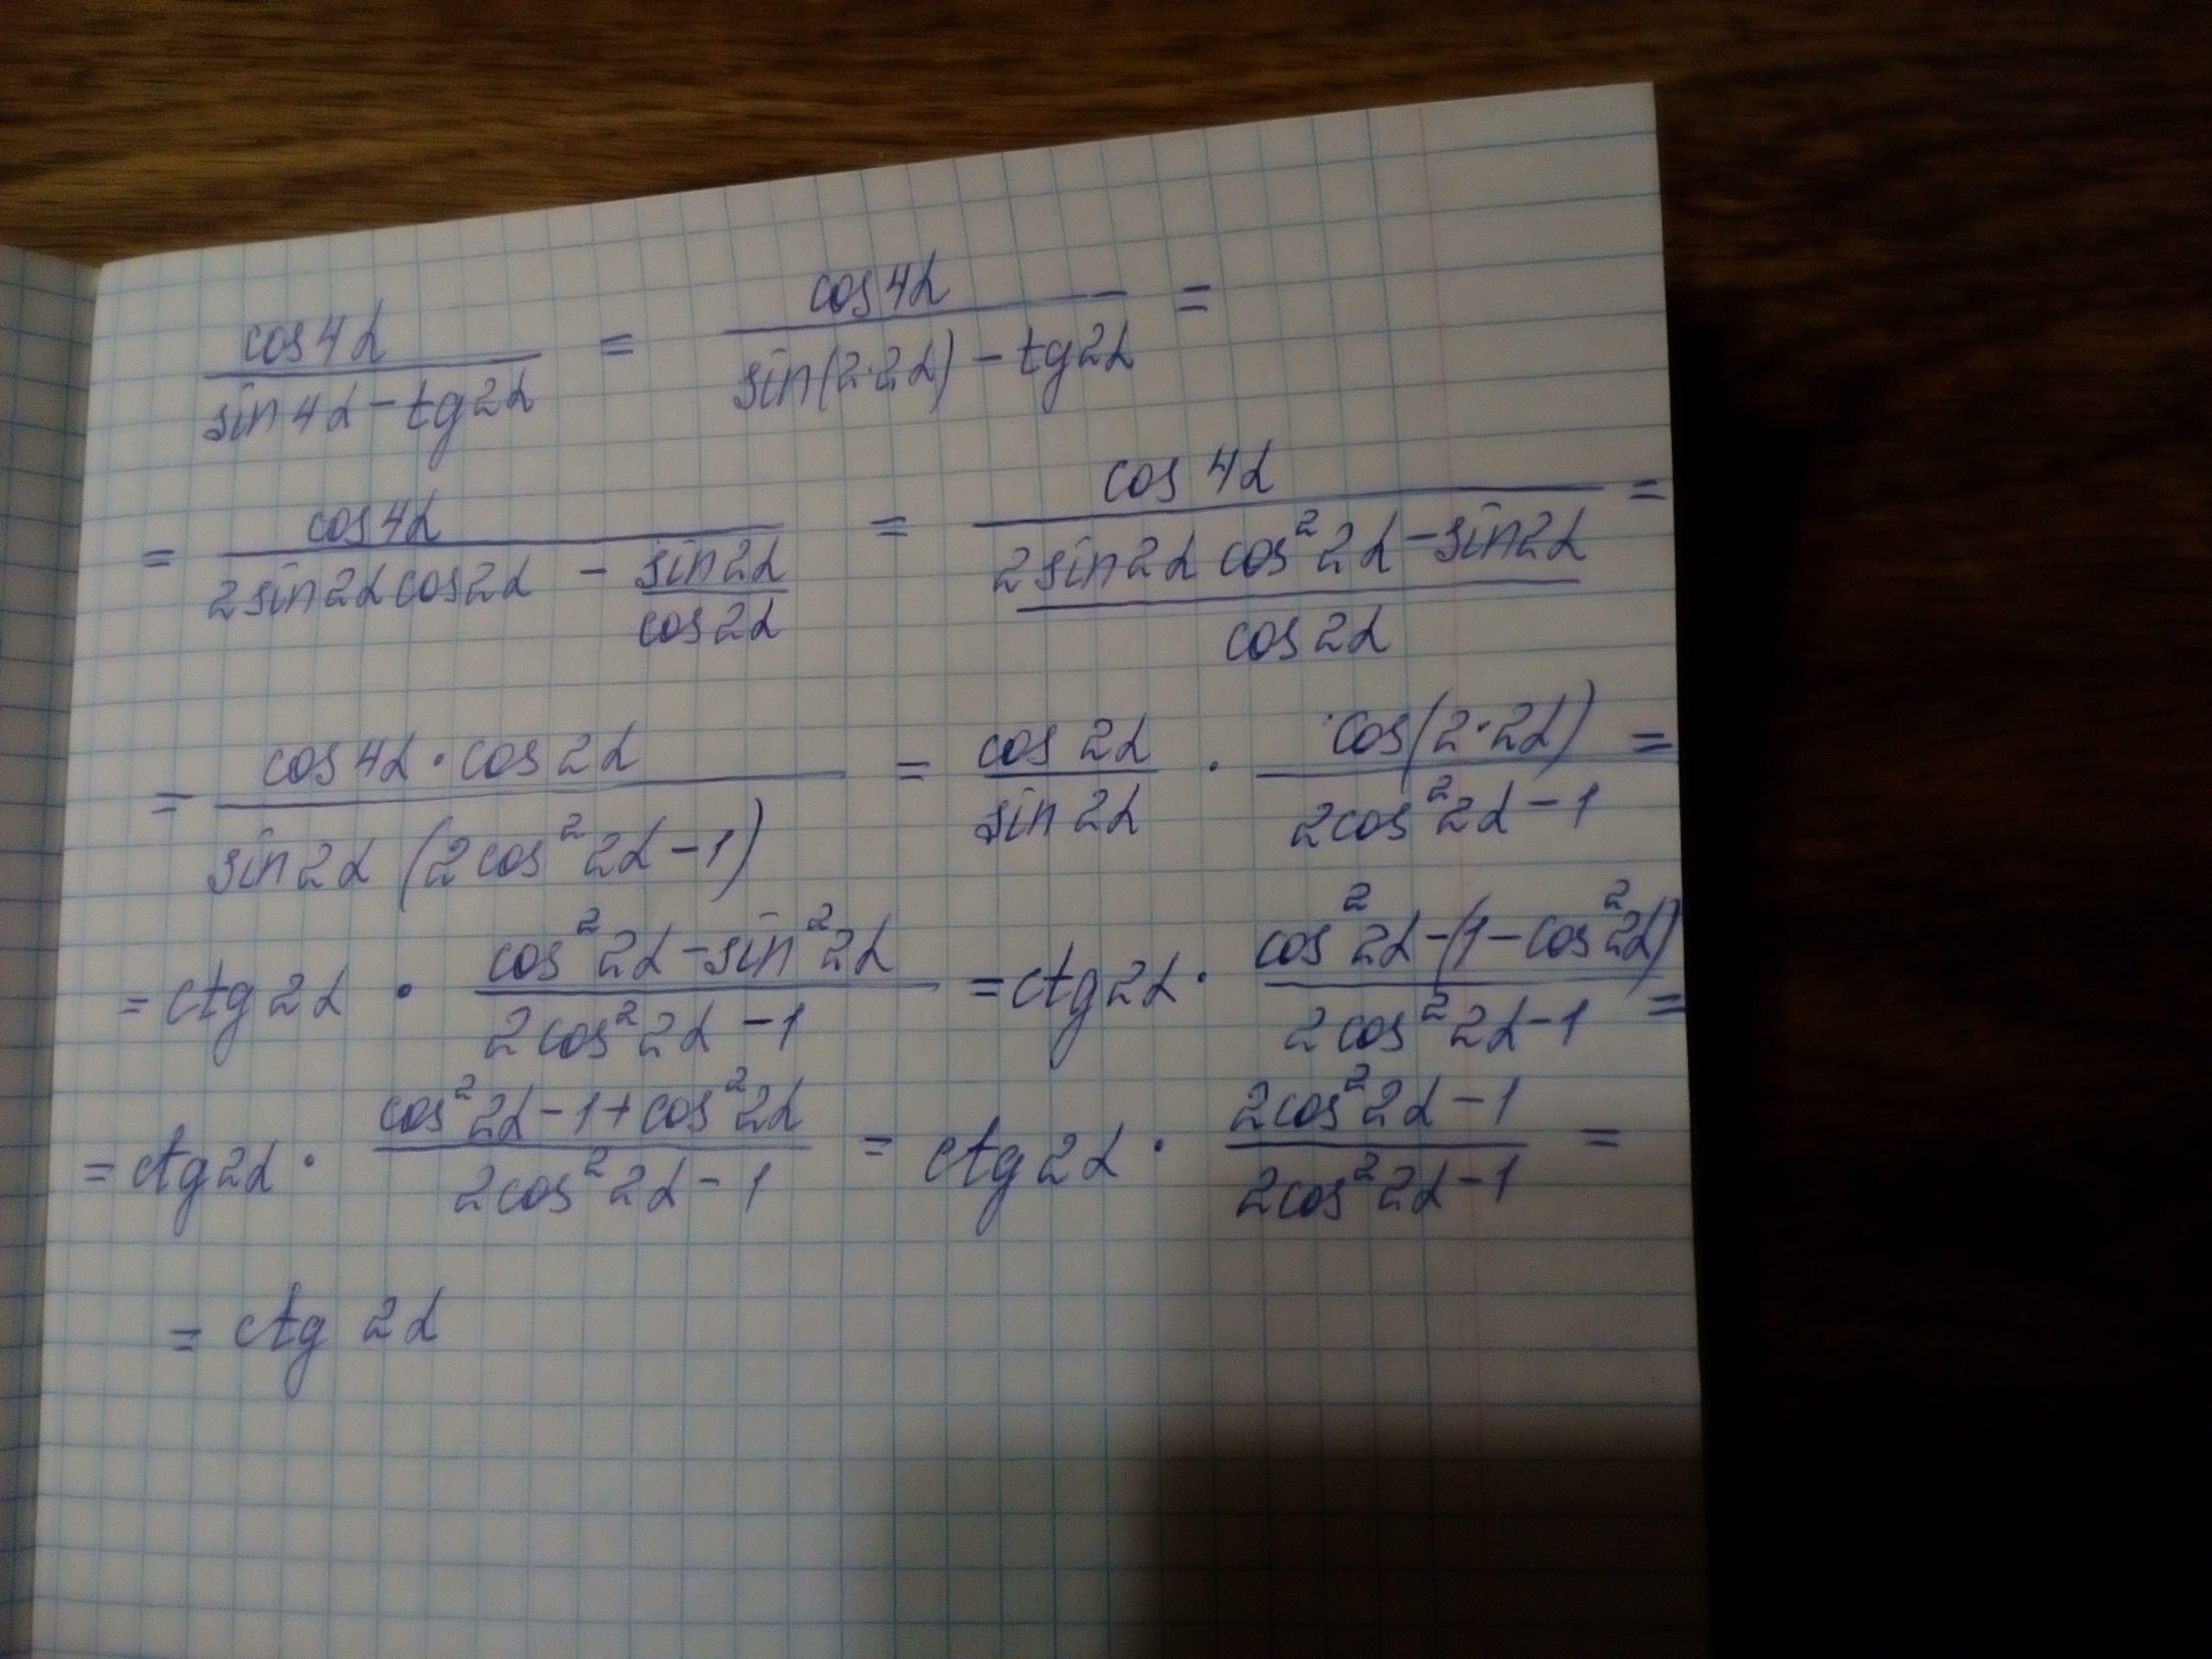 cos4α/(sin4α-tg2α) = cos4α/(sin(2·2α)-tg2α) =
= cos4α/(2sin2αcos2α - sin2α/cos2α) = cos4α/((2sin2αcos²2α-sin2α)/cos2α) =
= cos4α·cos2α/(sin2α(2cos²2α-1)) = cos2α/sin2α · cos(2·2α)/(2cos²2α-1) =
= ctg2α · (cos²2α-sin²2α)/(2cos²2α-1) = ctg2α · (cos²2α-(1-cos²2α))/(2cos²2α-1) =
= ctg2α · (cos²2α-1+cos²2α)/(2cos²2α-1) = ctg2α · (2cos²2α-1)/(2cos²2α-1) =
= ctg 2α